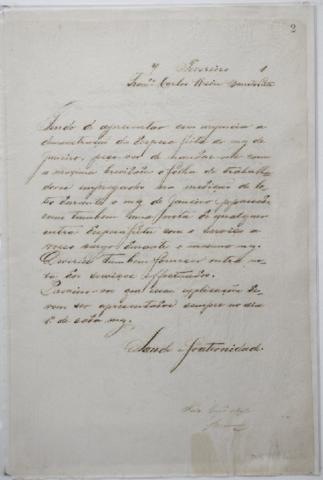 2
7 Fevereiro 1
Carlos
Tendo de apresentar com urgencia a
demonstração da despesa feita do mez de
Janeiro, peço vos de mandar me com
a maxima brevidade a folha de trabalha-
dores empregados na medição de lo-
tes durante o mez de Janeiro
como tambem uma nota de qualquer
outra despesa feita com o serviço a
vosso cargo durante o mesmo mez.
Devereis tambem fornecer outra no-
ta dos serviços effectuados.
Previno-vos que essas explicações de-
vem ser apresentadas sempre no dia
1º de cada mez.
Saude e fraternidade.